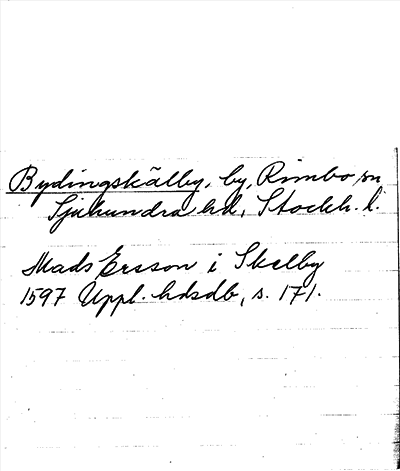 Bydingskälby, by, Rimbo sn
Sjuhundra hd, Stockh. l.
Mads Ersson i Skelby
1597 Uppl. hdsdb, s. 171.